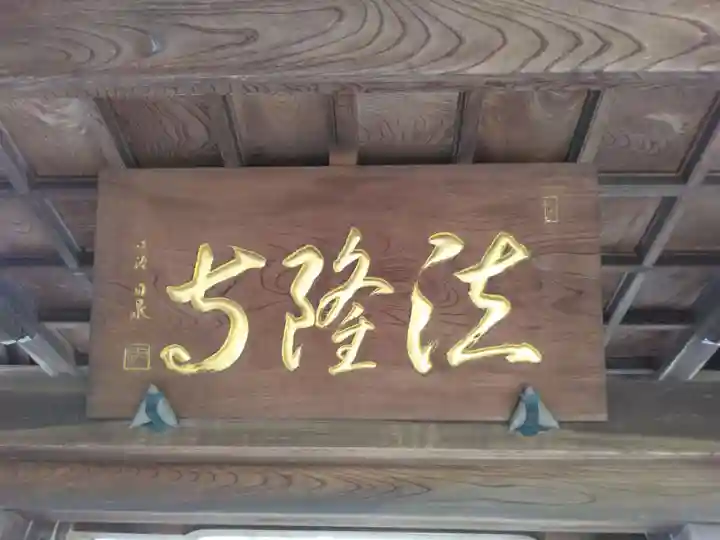 法隆寺